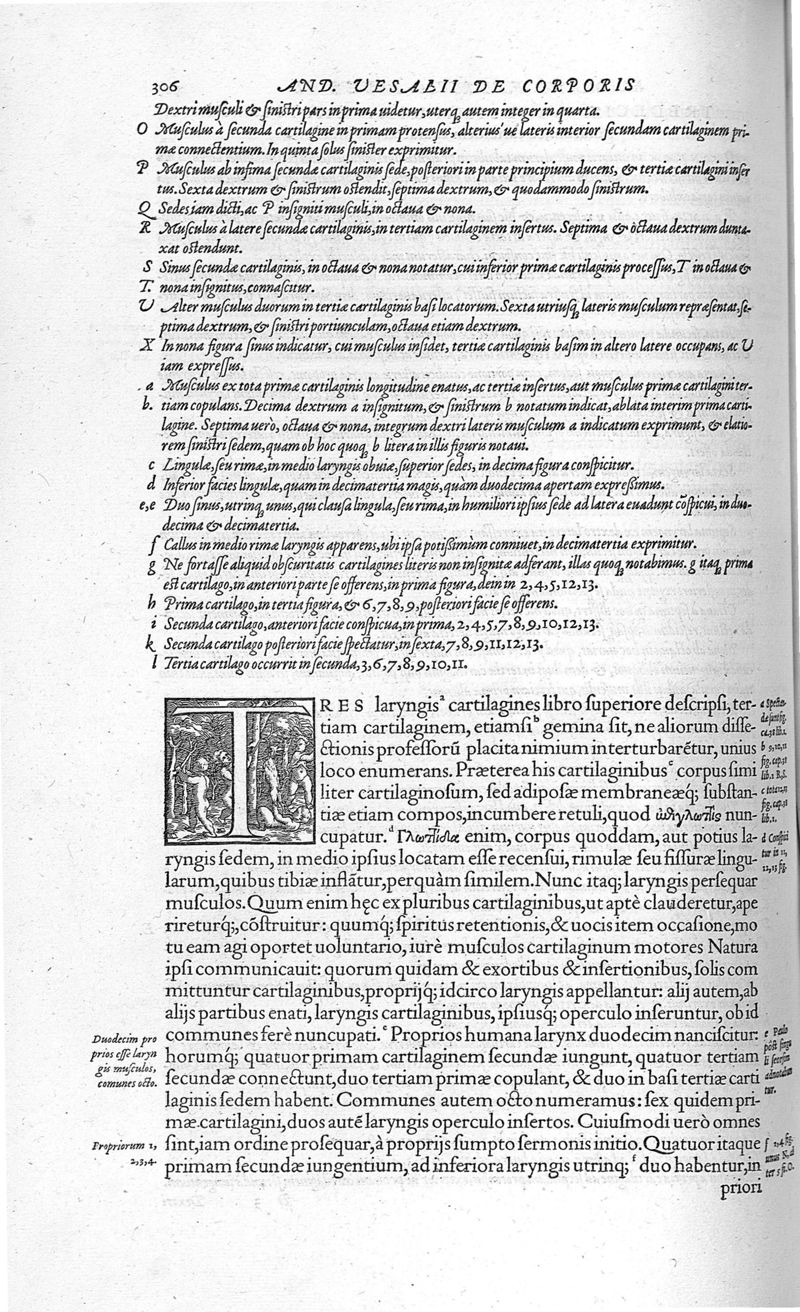 306 AND. VESALII DE CORPORIS
Dextri muſculi & ſiniſtri pars in prima uidetur, uterq; autem integer in quarta.
O Muſculus à ſecunda cartilagine in primam protenſus, alterius´ue lateris interior ſecundam cartilaginem pri-
mæ connectentium. In quinta ſolus ſiniſter exprimitur.
P Muſculus ab infima ſecundæ cartilaginis ſede, poſteriori in parte principium ducens, & tertiæ cartilagini inſer
tus. Sexta dextrum & ſiniſtrum oſtendit, ſeptima dextrum, & quodammodo ſiniſtrum.
Q Sedes iam dicti, ac P inſigniti muſculi, in octaua & nona.
R Muſculus à latere ſecundæ cartilaginis, in tertiam cartilaginem inſertus. Septima & octaua dextrum dunta-
xat oſtendunt.
S Sinus ſecundæ cartilaginis, in octaua & nona notatur, cui inferior primæ cartilaginis proceſſus, T in octaua &
T. nona inſignitus, connaſcitur.
V Alter muſculus duorum in tertiæ cartilaginis baſi locatorum. Sexta utriuſq; lateris muſculum repræſentat, ſe-
ptima dextrum, & ſiniſtri portiunculam, octaua etiam dextrum.
X In nona figura ſinus indicatur, cui muſculus inſidet, tertiæ cartilaginis baſim in altero latere occupans, ac V
iam expreſſus.
a Muſculus ex tota primæ cartilaginis longitudine enatus, ac tertiæ inſertus, aut muſculus primæ cartilagini ter-
b. tiam copulans. Decima dextrum a inſignitum, & ſiniſtrum b notatum indicat, ablata interim prima carti-
lagine. Septima uerò, octaua & nona, integrum dextri lateris muſculum a indicatum exprimunt, & elatio-
rem ſiniſtri ſedem, quam ob hoc quoq; b litera in illis figuris notaui.
c Lingulæ, ſeu rimæ, in medio laryngis obuiæ, ſuperior ſedes, in decima figura conſpicitur.
d Inferior facies lingulæ, quam in decimatertia magis, quàm duodecima apertam expreſſimus.
e,e Duo ſinus, utrinq; unus, qui clauſa lingula, ſeu rima, in humiliori ipſius ſede ad latera euadunt cõſpicui, in duo-
decima & decimatertia.
f Callus in medio rimæ laryngis apparens, ubi ipſa potiſſimùm conniuet, in decimatertia exprimitur.
g Ne fortaſſe aliquid obſcuritatis cartilagines literis non inſignitæ adferant, illas quoq; notabimus. g itaq; prima
eſt cartilago, in anteriori parte ſe offerens, in prima figura, dein in 2,4,5,12,13.
h Prima cartilago, in tertia figura, & 6,7,8,9, poſteriori facie ſe offerens.
i Secunda cartilago, anteriori facie conſpicua, in prima, 2,4,5,7,8,9,10,12,13.
k Secunda cartilago poſteriori facie ſpectatur, in ſexta, 7,8,9,11,12,13.
l Tertia cartilago occurrit in ſecunda, 3,6,7,8,9,10,11.
TRES laryngis a cartilagines libro ſuperiore deſcripſi, ter-
tiam cartilaginem, etiamſi b gemina ſit, ne aliorum diſſe-
ctionis profeſſorũ placita nimium interturbarẽtur, unius
loco enumerans. Præterea his cartilaginibus c corpus ſimi
liter cartilaginoſum, ſed adipoſæ membraneæq́; ſubſtan-
tiæ etiam compos, incumbere retuli, quod ἐπιγλωττὶς nun-
cupatur. d Γλωττίδα enim, corpus quoddam, aut potius la-
ryngis ſedem, in medio ipſius locatam eſſe recenſui, rimulæ ſeu fiſſuræ lingu-
larum, quibus tibiæ inflãtur, perquàm ſimilem. Nunc itaq; laryngis perſequar
muſculos. Quum enim hęc ex pluribus cartilaginibus, ut aptè clauderetur, ape
rireturq́;, cõſtruitur: quumq́; ſpiritus retentionis, & uocis item occaſione, mo
tu eam agi oportet uoluntario, iurè muſculos cartilaginum motores Natura
ipſi communicauit: quorum quidam & exortibus & inſertionibus, ſolis com
mittuntur cartilaginibus, proprijq́; idcirco laryngis appellantur: alij autem, ab
alijs partibus enati, laryngis cartilaginibus, ipſiusq́; operculo inſeruntur, ob id
communes ferè nuncupati. e Proprios humana larynx duodecim nanciſcitur:
horumq́; quatuor primam cartilaginem ſecundæ iungunt, quatuor tertiam
ſecundæ connectunt, duo tertiam primæ copulant, & duo in baſi tertiæ carti
laginis ſedem habent. Communes autem octo numeramus: ſex quidem pri-
mæ cartilagini, duos autẽ laryngis operculo inſertos. Cuiuſmodi uerò omnes
ſint, iam ordine proſequar, à proprijs ſumpto ſermonis initio. Quatuor itaque
primam ſecundæ iungentium, ad inferiora laryngis utrinq; f duo habentur, in
priori
Duodecim pro
prios eſſe laryn
gis muſculos,
comunes octo.
Propriorum 1,
2,3,4.